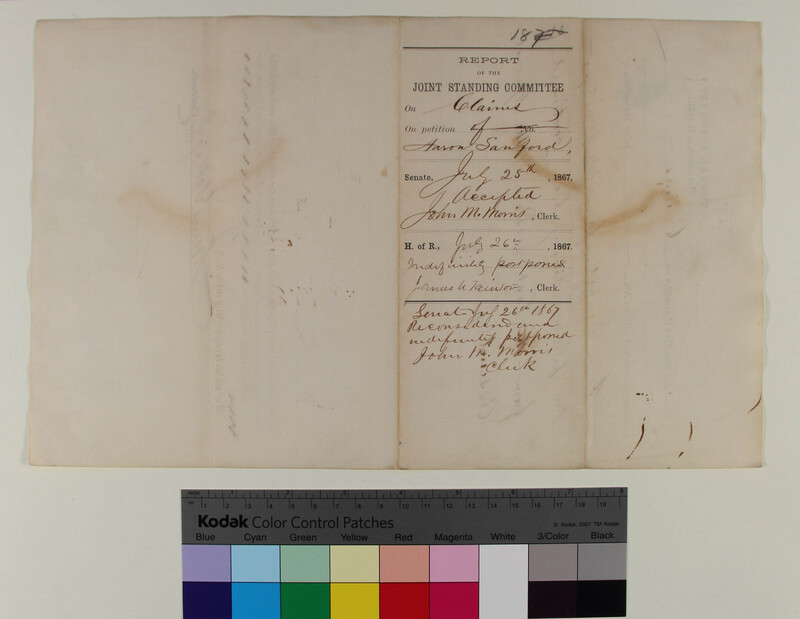 187
REPORT
OF THE
JOINT STANDING COMMITTEE
On Claims
On petition of No.
Aaron Sanford,
Senate, July 25th, 1867,
Accepted
John M. Morris, Clerk.
H. of R., July 26th, 1867.
Indefinitely postponed
James, Clerk.
Senate July 26th 1867
Reconsidered and
indefinitely postponed
John M. Morris
Clerk
Kodak Color Control Patches
© Kodak, 2007 TM: Kodak
Blue Cyan Green Yellow Red Magenta White 3/Color Black